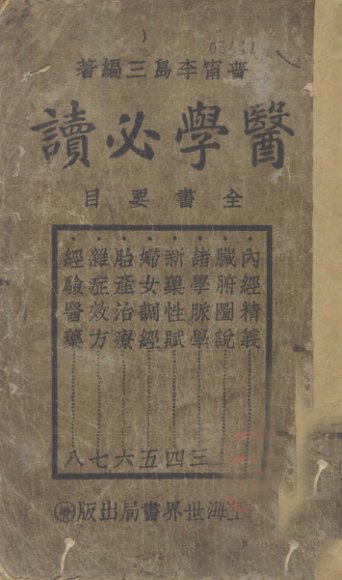 03441
普甯李島三編著
醫學必讀
全書要目
內經精義
臟腑圖說
諸學脈學……三
新藥性賦……四
婦女調經……五
胎產治療……六
雜症效方……七
經驗醫藥……八
海世界書局出版